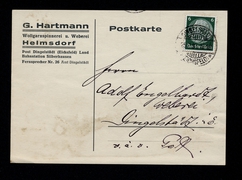 G. Hartmann
Wollgarnspinnerei u. Weberei
Helmsdorf
Post Dingelstädt (Eichsfeld) Land
Bahnstation Silberhausen
Fernsprecher Nr. 20 Amt Dingelstädt
Postkarte
Adolf Engelhardt,
Weberei
Dingelstädt